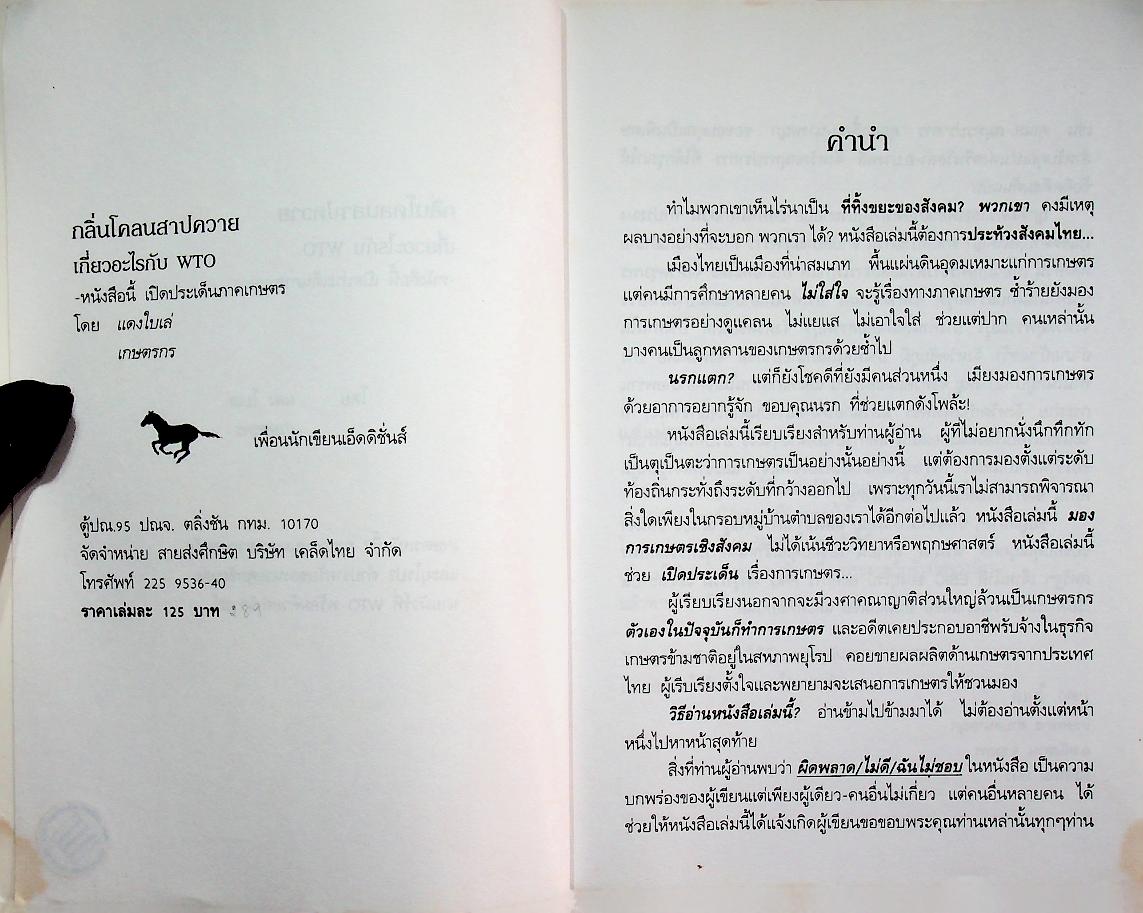 กลิ่นโคลนสาปควาย
เกี่ยวอะไรกับ WTO
-หนังสือนี้ เปิดประเด็นภาคเกษตร
โดย แดงใบเล่
เกษตรกร
เพื่อนนักเขียนเอ็ดดิชั่นส์
ตู้ปณ.95 ปณจ. ตลิ่งชัน กทม. 10170
จัดจำหน่าย สายส่งศึกษิต บริษัท เคล็ดไทย จำกัด
โทรศัพท์ 225 9536-40
ราคาเล่มละ 125 บาท 289
คำนำ
ทำไมพวกเขาเห็นไร่นาเป็น ที่ทิ้งขยะของสังคม? พวกเขา คงมีเหตุ
ผลบางอย่างที่จะบอก พวกเรา ได้? หนังสือเล่มนี้ต้องการประท้วงสังคมไทย...
เมืองไทยเป็นเมืองที่น่าสมเภท พื้นแผ่นดินอุดมเหมาะแก่การเกษตร
แต่คนมีการศึกษาหลายคน ไม่ใส่ใจ จะรู้เรื่องทางภาคเกษตร ซ้ำร้ายยังมอง
การเกษตรอย่างดูแคลน ไม่แยแส ไม่เอาใจใส่ ช่วยแต่ปาก คนเหล่านั้น
บางคนเป็นลูกหลานของเกษตรกรด้วยซ้ำไป
นรกแตก? แต่ก็ยังโชคดีที่ยังมีคนส่วนหนึ่ง เมียงมองการเกษตร
ด้วยอาการอยากรู้จัก ขอบคุณนรก ที่ช่วยแตกดังโพล้ะ!
หนังสือเล่มนี้เรียบเรียงสำหรับท่านผู้อ่าน ผู้ที่ไม่อยากนั่งนึกทึกทัก
เป็นตุเป็นตะว่าการเกษตรเป็นอย่างนั้นอย่างนี้ แต่ต้องการมองตั้งแต่ระดับ
ท้องถิ่นกระทั่งถึงระดับที่กว้างออกไป เพราะทุกวันนี้เราไม่สามารถพิจารณา
สิ่งใดเพียงในกรอบหมู่บ้านตำบลของเราได้อีกต่อไปแล้ว หนังสือเล่มนี้ มอง
การเกษตรเชิงสังคม ไม่ได้เน้นชีวะวิทยาหรือพฤกษศาสตร์ หนังสือเล่มนี้
ช่วย เปิดประเด็น เรื่องการเกษตร...
ผู้เรียบเรียงนอกจากจะมีวงศาคณาญาติส่วนใหญ่ล้วนเป็นเกษตรกร
ตัวเองในปัจจุบันก็ทำการเกษตร และอดีตเคยประกอบอาชีพรับจ้างในธุรกิจ
เกษตรข้ามชาติอยู่ในสหภาพยุโรป คอยขายผลผลิตด้านเกษตรจากประเทศ
ไทย ผู้เรีบเรียงตั้งใจและพยายามจะเสนอการเกษตรให้ชวนมอง
วิธีอ่านหนังสือเล่มนี้? อ่านข้ามไปข้ามมาได้ ไม่ต้องอ่านตั้งแต่หน้า
หนึ่งไปหาหน้าสุดท้าย
สิ่งที่ท่านผู้อ่านพบว่า ผิดพลาด/ไม่ดี/ฉันไม่ชอบ ในหนังสือ เป็นความ
บกพร่องของผู้เขียนแต่เพียงผู้เดียว-คนอื่นไม่เกี่ยว แต่คนอื่นหลายคน ได้
ช่วยให้หนังสือเล่มนี้ได้แจ้งเกิดผู้เขียนขอขอบพระคุณท่านเหล่านั้นทุกๆท่าน